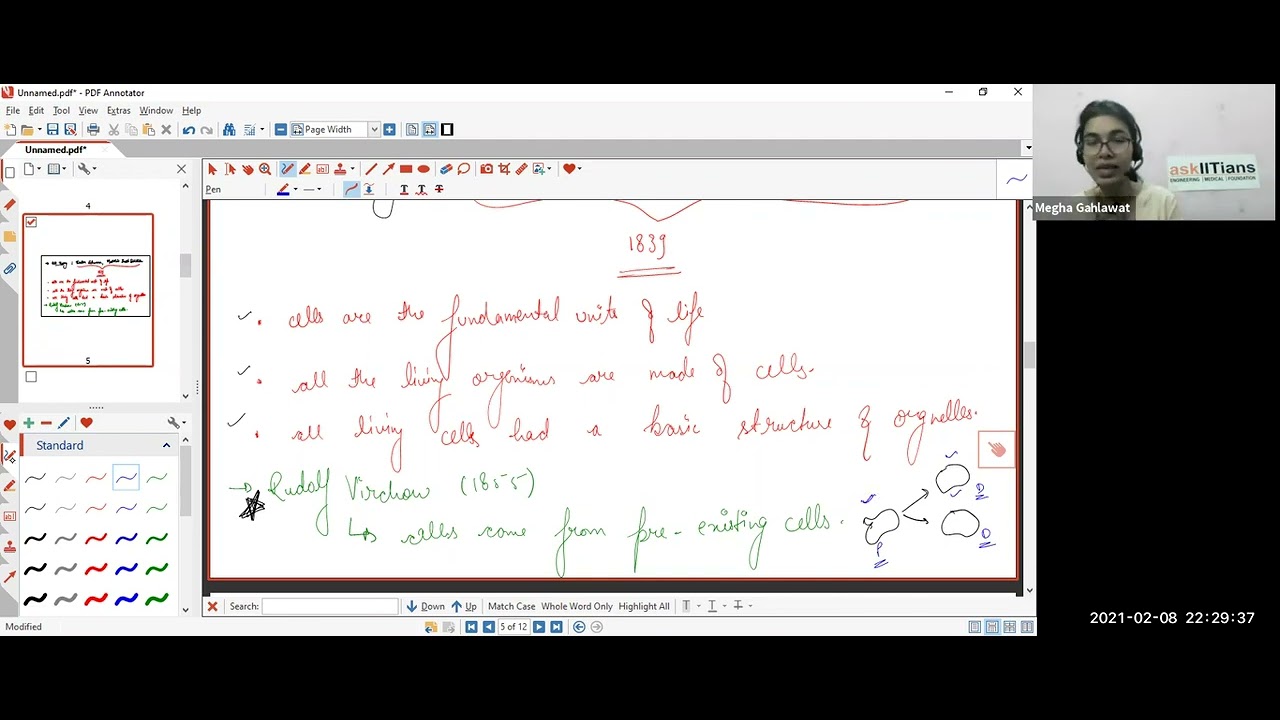 Unnamed.pdf* - PDF Annotator
File Edit Tool View Extras Window Help
Page Width
Unnamed.pdf*
Pen
4
5
Standard
1839
• cells are the fundamental units of life
• all the living organisms are made of cells.
• all living cells had a basic structure & orgnelles.
→ Rudolf Virchow (1855)
↳ cells come from pre-existing cells.
P
D
D
Search: Down Up Match Case Whole Word Only Highlight All
Modified
5 of 12
askIITians
ENGINEERING | MEDICAL | FOUNDATION
Megha Gahlawat
2021-02-08 22:29:37